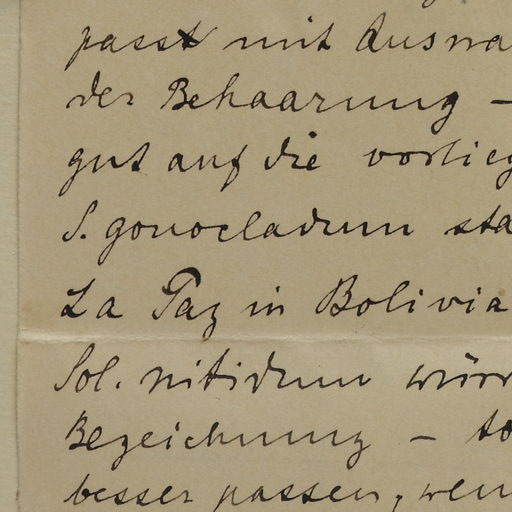 passt mit Ausna
der Behaarung –
gut auf die vorlieg
S. gonocladum sta
La Paz in Bolivia
Sol. nitidum würd
Bezeichnung – to
besser passen, wen